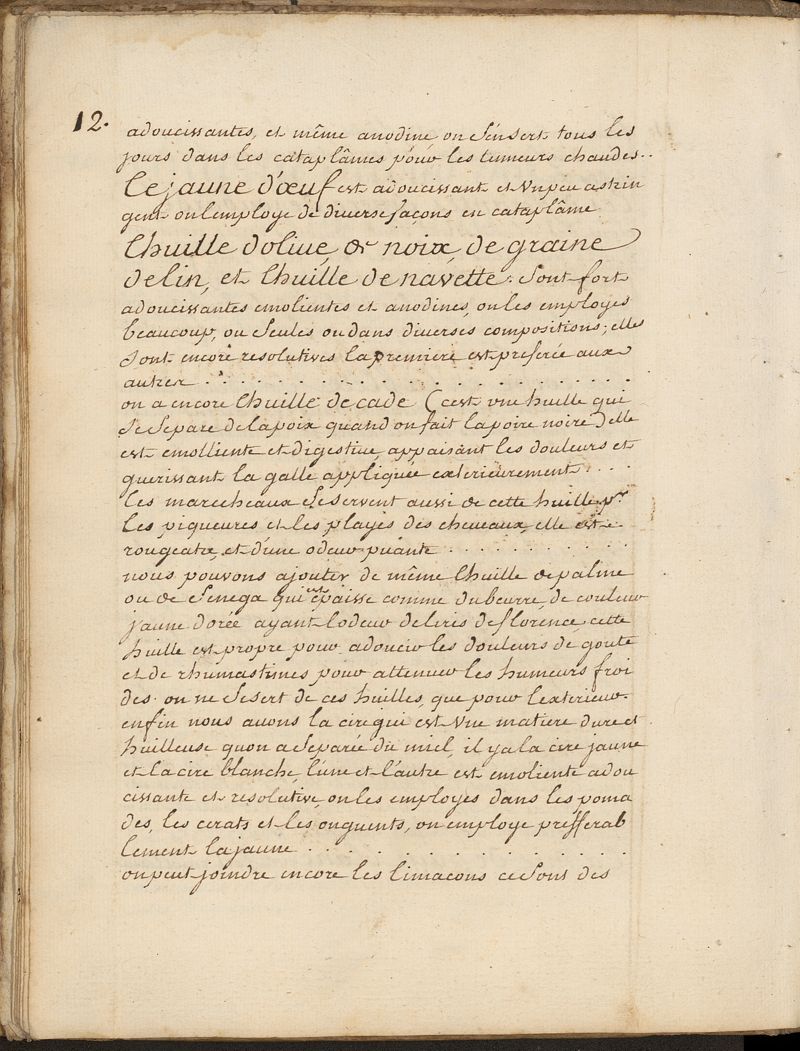 12.
adoucissantes, et même anodine on s'en sert tous les
jours dans les cataplâmes pour les tumeurs chaudes..
Le jaune d'œuf est adoucissant et un peu astrin
gent on lemploye de diverse façons en cataplâme
Lhuille dolive, & noix, de graine
de lin, et Lhuille de navette. Sont fort
adoucissantes emolientes et anodines, on les employes
beaucoup, ou Seules ou dans diverses compositions; elles
Sont encore resolutives la premiere est preferée aux
autres . . . . . . . . . . . . . . . . . . . .
on a encore Lhuille de cade (cest vne huille qui
Se Separe de la poix quand on fait la poire noire) elle
est emolliente et digestive, appaisant les douleurs et
guerissant la galle appliquée exterieurement . . .
Les marecheaux se servent aussi de cette huille pr
Les piqueures et les playes des cheveaux, elle est
rougeatre, et d'une odeur puante . . . . . . . . . .
nous pouvons ajouter de même Lhuille de palme
ou de Senega qui est epaisse comme du beurre, de couleur
jaune dorée ayant lodeur de liris de florence, cette
huille est propre pour adoucir les douleurs de goute
et de rhumastimes pour attenuer les humeurs froi
des. on ne se sert de ces huilles, que pour lexterieur.
enfin nous avons la cire qui est vne matiere dure et
huilleuse quon a Separée du miel, il y a la cire jaune
et la cire blanche, l'une et l'autre est emoliente adou
cissante et resolutive, on les employes dans les poma
des, les cerats et les onguents, on employe prefferab
lement la jaune . . . . . . . . . . . . .
on peut joindre encore les limacons ce Sont des